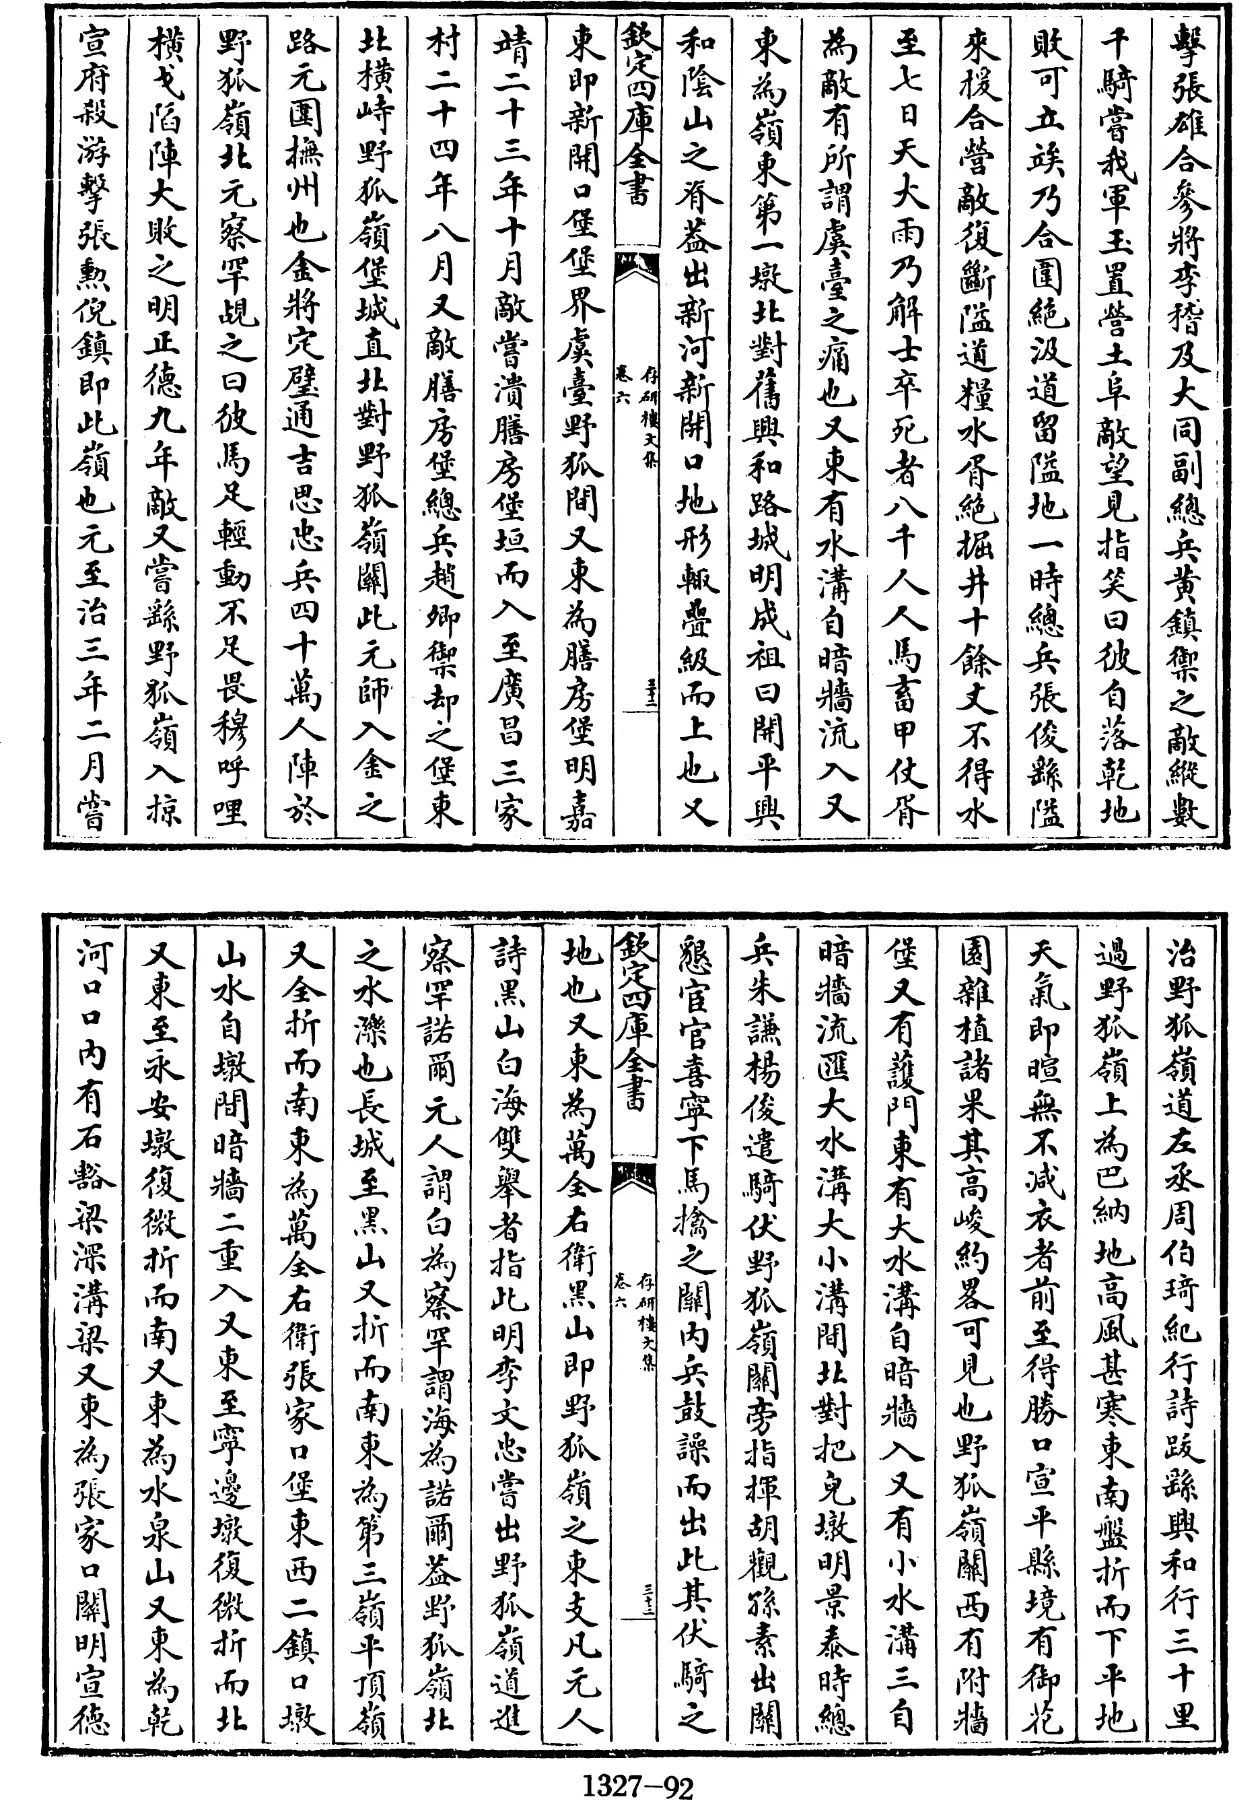 擊張雄合參將李稽及大同副總兵黃鎮禦之敵縱數
千騎嘗我軍玉置營土阜敵望見指笑曰彼自落乾地
敗可立竢乃合圍絶汲道留隘地一時總兵張俊繇隘
來援合營敵復斷隘道糧水胥絶掘井十餘丈不得水
至七日天大雨乃解士卒死者八千人人馬畜甲仗胥
為敵有所謂虞臺之痛也又東有水溝自暗牆流入又
東為嶺東第一墩北對舊興和路城明成祖曰開平興
和陰山之脊葢出新河新開口地形輒疊級而上也又
欽定四庫全書
存研樓文集
卷六
三十二
東即新開口堡堡界虞臺野狐間又東為膳房堡明嘉
靖二十三年十月敵嘗潰膳房堡垣而入至廣昌三家
村二十四年八月又敵膳房堡總兵趙卿禦却之堡東
北橫峙野狐嶺堡城直北對野狐嶺關此元師入金之
路元圍撫州也金將定璧通吉思忠兵四十萬人陣於
野狐嶺北元察罕覘之曰彼馬足輕動不足畏穆呼哩
橫戈陷陣大敗之明正德九年敵又嘗繇野狐嶺入掠
宣府殺游擊張勲倪鎮即此嶺也元至治三年二月嘗
治野狐嶺道左丞周伯琦紀行詩跋繇興和行三十里
過野狐嶺上為巴納地高風甚寒東南盤折而下平地
天氣即暄無不減衣者前至得勝口宣平縣境有御花
園雜植諸果其高峻約畧可見也野狐嶺關西有附牆
堡又有護門東有大水溝自暗牆入又有小水溝三自
暗牆流匯大水溝大小溝間北對把兒墩明景泰時總
兵朱謙楊俊遣騎伏野狐嶺關旁指揮胡觀孫素出關
懇宦官喜寧下馬擒之關内兵鼓譟而出此其伏騎之
欽定四庫全書
存研樓文集
卷六
三十三
地也又東為萬全右衛黑山即野狐嶺之東支凡元人
詩黑山白海雙舉者指此明李文忠嘗出野狐嶺道進
察罕諾爾元人謂白為察罕謂海為諾爾葢野狐嶺北
之水濼也長城至黑山又折而南東為第三嶺平頂嶺
又全折而南東為萬全右衛張家口堡東西二鎮口墩
山水自墩間暗牆二重入又東至寧邊墩復微折而北
又東至永安墩復微折而南又東為水泉山又東為乾
河口口内有石豁梁深溝梁又東為張家口關明宣德
1327-92